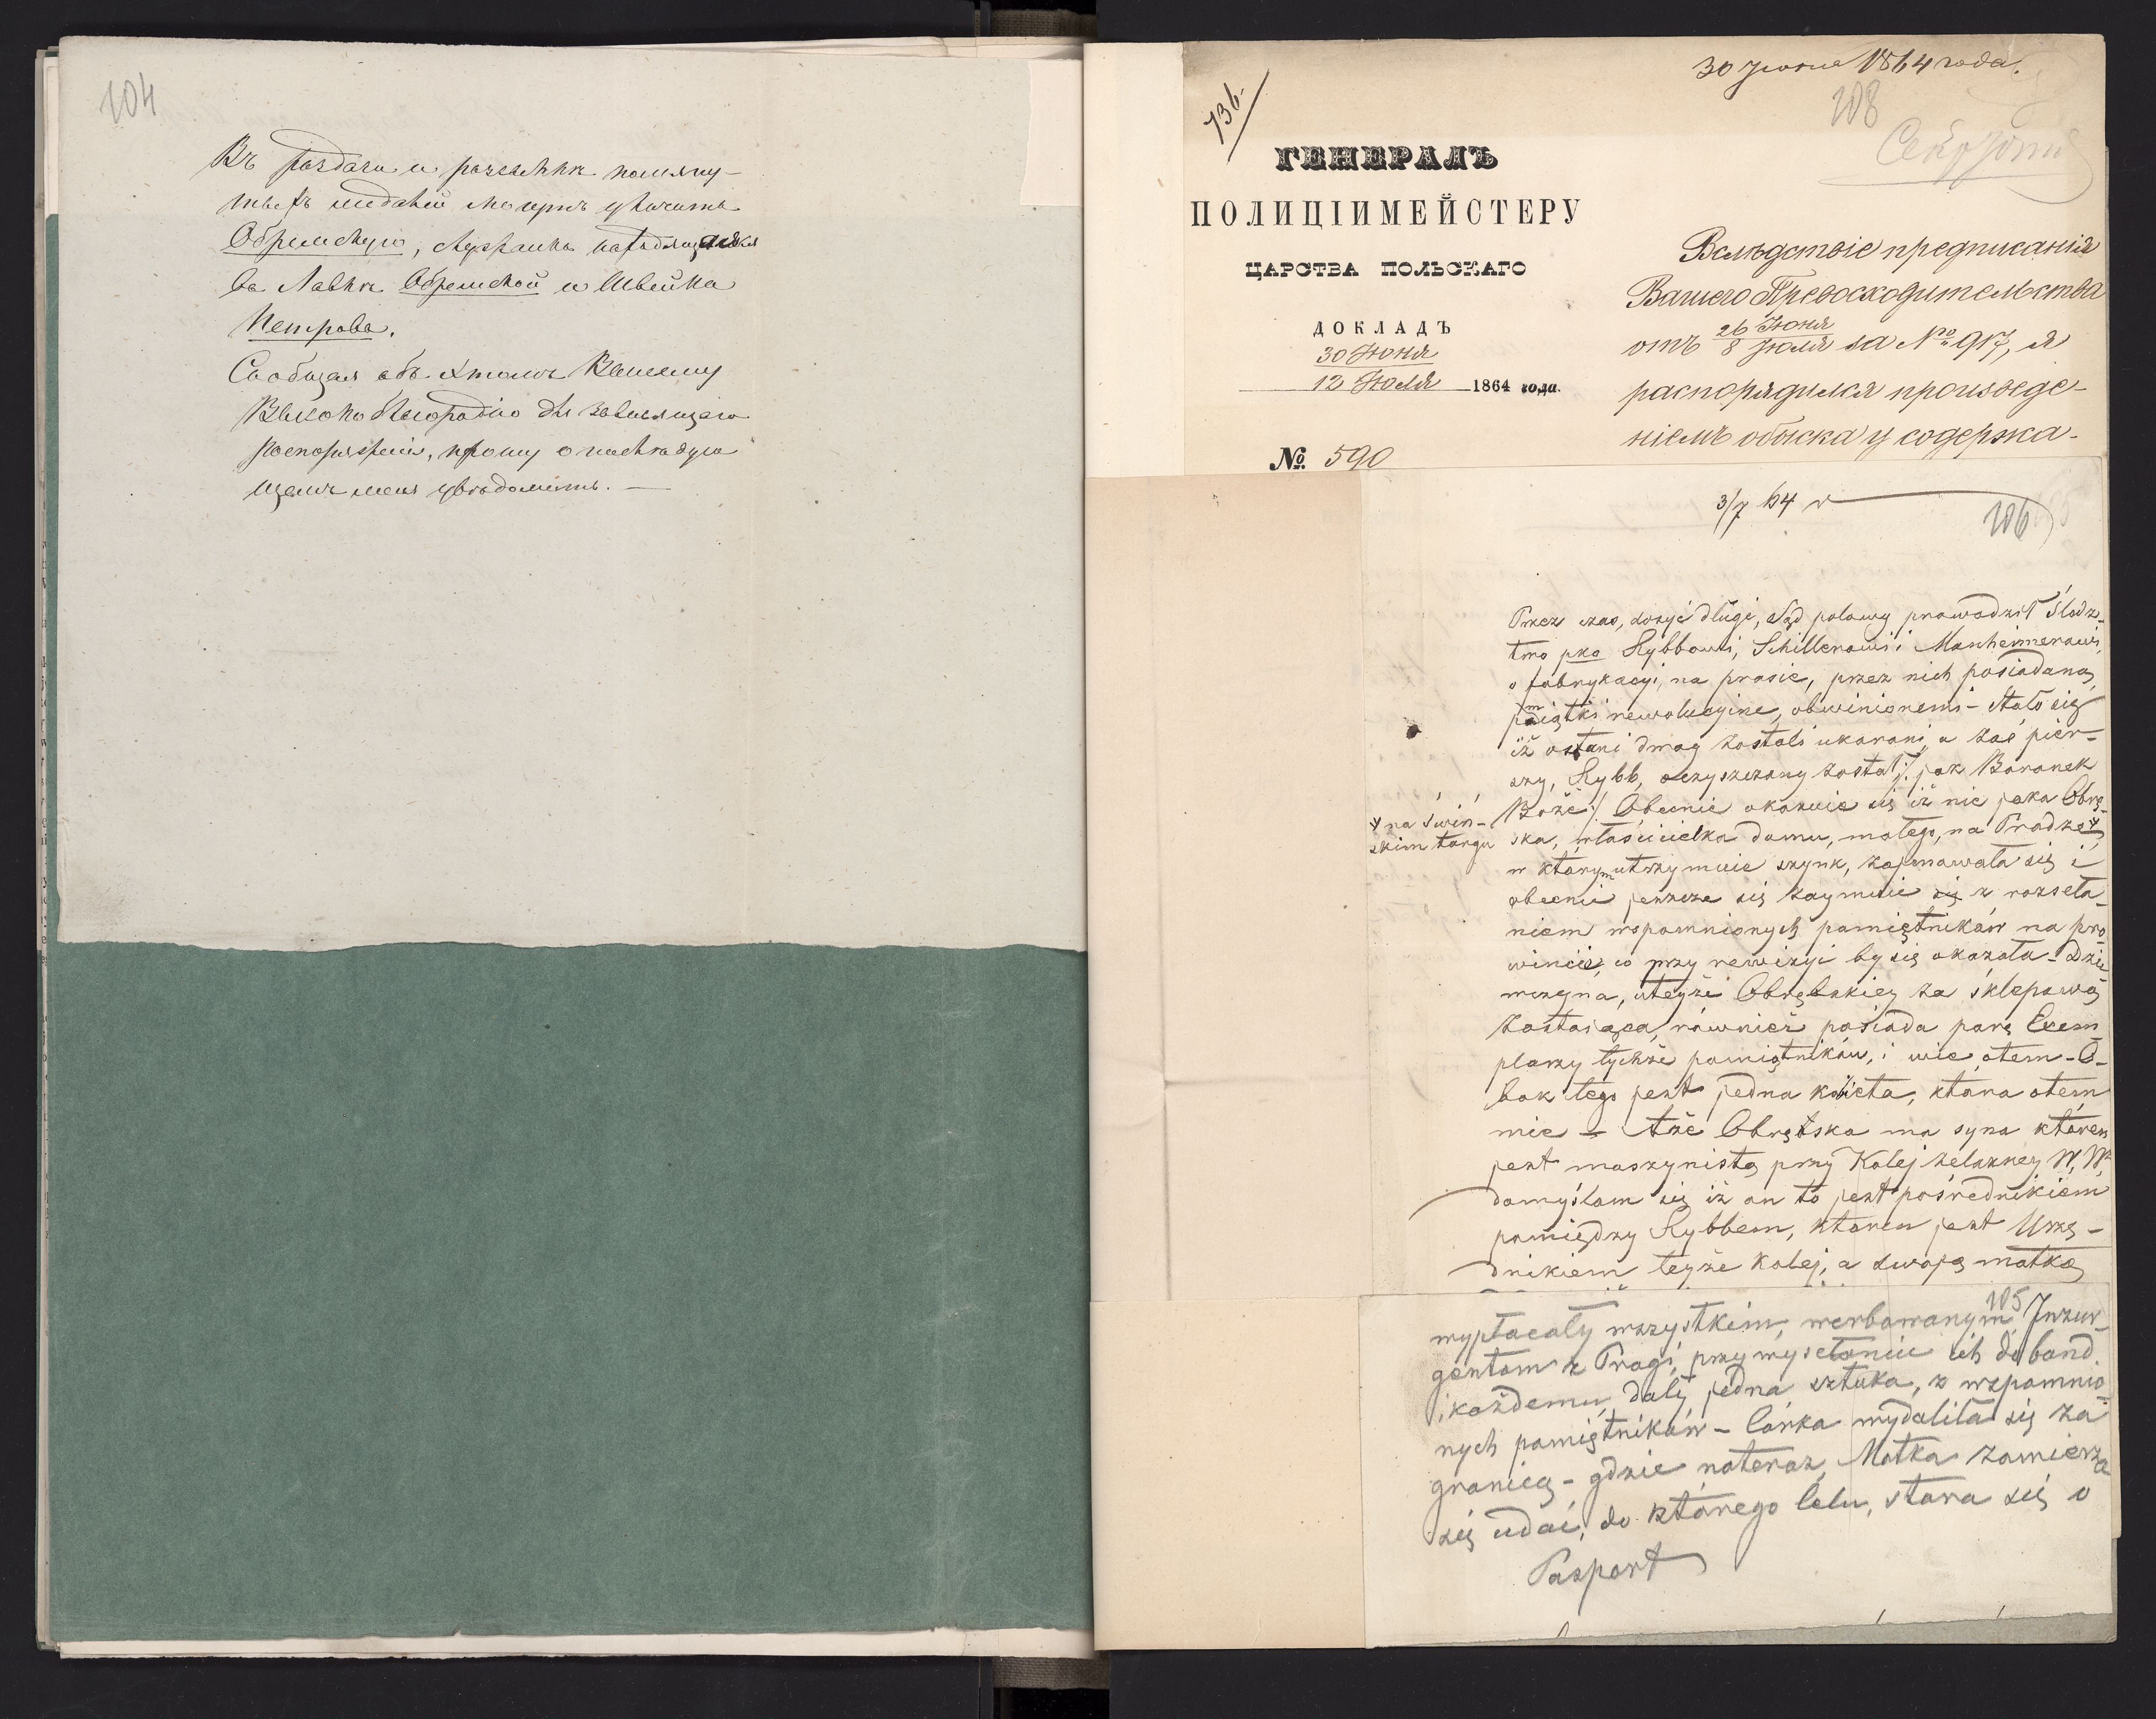 104
Въ раздачи и разсылкѣ помяну-
тыхъ изданій могутъ уличить
Обремскую, служанка находящаяся
въ лавкѣ Обремской и швейка
Петрова.
Сообщая объ этомъ Вашему
Высокоблагородію для зависящаго
распоряженія, прошу о послѣдую
щемъ меня увѣдомить. —
736.
30 Июня 1864 года.
108
Секретно
ГЕНЕРАЛЪ
ПОЛИЦІИМЕЙСТЕРУ
ЦАРСТВА ПОЛЬСКАГО
ДОКЛАДЪ
30 Июня
12 Июля 1864 года.
№ 590
Вслѣдствіе предписанія
Вашего Превосходительства
отъ 26 Июня / 8 Июля за № 917, я
распорядился произведе-
ніемъ обыска у содержа-
3/7 64 r
106
Przez czas, dosyć długi, Sąd polowy prowadził Śledz-
two pko Rybbowi, Schillerowi i Manheimerowi,
o fabrykacyi, na prasie, przez nich posiadaną,
pamiątki rewolucyine, obwinionemi - Stało się
iż ostani dwaj zostali ukarani, a zaś pier-
szy, Rybb, oczyszczony został /: jak Baranek
Boże :/ Obecnie okazuie się iż nie jaka Obrę-
ska, właścicielka domu, małego, na Pradze
* na Świń-
skim targu
w którym utrzymuie szynk, zajmowała się i
obecnie jeszcze się zaymuie się z rozseła-
niem wspomnionych pamiętników na pro-
wincie, co przy rewizyi by się okazało - Dzie
wczyna, u teyże Obrębskiey za sklepową
zostaiąca, również posiada parę Exem
plarzy tychże pamiętników, i wie o tem - O-
bok tego jest jedna kobieta, która o tem
wie - Taż Obrębska ma syna któren
jest maszynistą przy Kolej żelazney W. W.
domyślam się iż on to jest pośrednikiem
pomiędzy Rybbem, któren jest Urzę-
dnikiem teyże Kolej, a swoją matką
105
wypłacały wszystkim, werbowanym Inzur-
gentom z Pragi, przy wysełaniu ich do band.
i każdemu dały jedna sztuka, z wspomnio-
nych pamiętników - Córka wydaliła się za
granicą - gdzie nateraz Matka zamierza
się udać, do którego celu, stara się o
Paszport